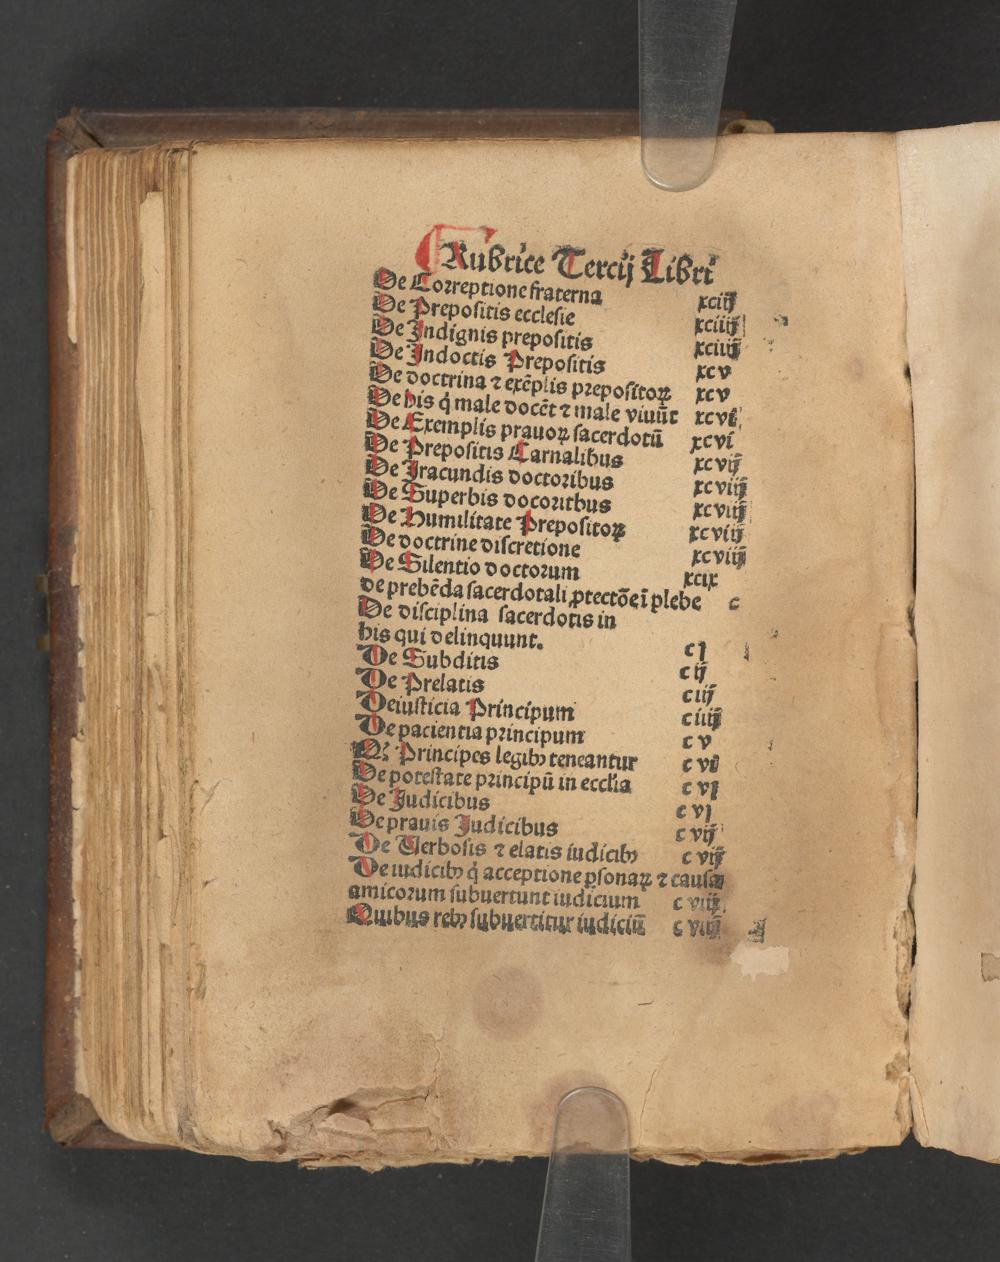 Rubrice Tercij Libri
De Correptione fraterna xciij
De Prepositis ecclesie xciiij
De Indignis prepositis xciiij
De Indoctis Prepositis xcv
De doctrina ⁊ exẽplis prepositoꝝ xcv
De his q̇ male docẽt ⁊ male viuũt xcvi
De Exemplis prauoꝝ sacerdotũ xcvi
De Prepositis Carnalibus xcvij
De Iracundis doctoribus xcviij
De Superbis docoribus xcviij
De Humilitate Prepositoꝝ xcviij
De doctrine discretione xcviij
De Silentio doctorum xcix
de prebẽda sacerdotali ꝓtectõe ĩ plebe c
De disciplina sacerdotis in
his qui delinquunt. cj
De Subditis cij
De Prelatis ciij
De iusticia Principum ciiij
De paciencia principum cv
Qꝫ Principes legibꝫ teneantur cvi
De potestate principũ in ecclia cvj
De Iudicibus cvj
De prauis Iudicibus cvij
De Verbosis ⁊ elatis iudicibꝫ cvij
De iudicibꝫ q̇ acceptione ꝑsonaꝝ ⁊ causa
amicorum subuertunt iudicium cviij
Quibus rebꝫ subuertitur iudiciũ cviij